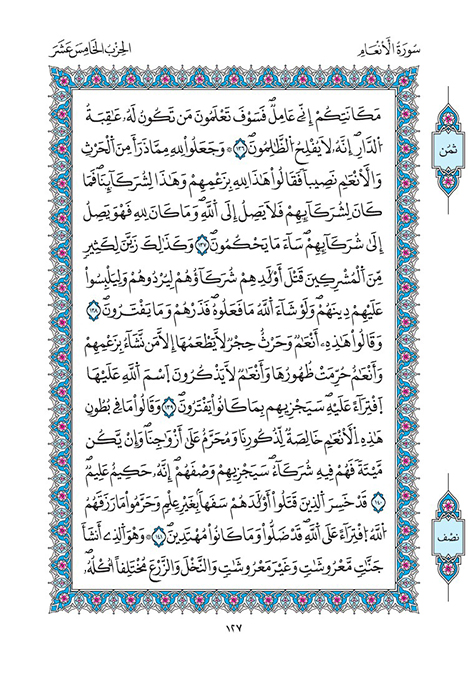 سُورَةُ الْأَنْعَامِ
الحِزْبُ الخَامِسَ عَشَرَ
مَكَانَتِكُمْ إِنِّي عَامِلٌ فَسَوْفَ تَعْلَمُونَ مَن تَكُونُ لَهُۥ عَٰقِبَةُ
ثُمُن
اُ۬لدّ۪ارِ إِنَّهُۥ لَا يُفْلِحُ اُ۬لظَّٰلِمُونَۖ ١٣٦ وَجَعَلُواْ لِلهِ مِمَّا ذَرَأَ مِنَ اَ۬لْحَرْثِ
وَالْأَنْعَٰمِ نَصِيباٗ فَقَالُواْ هَٰذَا لِلهِ بِزَعْمِهِمْ وَهَٰذَا لِشُرَكَآئِنَاۖ فَمَا
كَانَ لِشُرَكَآئِهِمْ فَلَا يَصِلُ إِلَى اَ۬للَّهِۖ وَمَا كَانَ لِلهِ فَهُوَ يَصِلُ
إِلَىٰ شُرَكَآئِهِمْۖ سَآءَ مَا يَحْكُمُونَۖ ١٣٧ وَكَذَٰلِكَ زَيَّنَ لِكَثِيرٖ
مِّنَ اَ۬لْمُشْرِكِينَ قَتْلَ أَوْلَٰدِهِمْ شُرَكَآؤُهُمْ لِيُرْدُوهُمْ وَلِيَلْبِسُواْ
عَلَيْهِمْ دِينَهُمْۖ وَلَوْ شَآءَ اَ۬للَّهُ مَا فَعَلُوهُۖ فَذَرْهُمْ وَمَا يَفْتَرُونَۖ ١٣٨
وَقَالُواْ هَٰذِهِۦٓ أَنْعَٰمٞ وَحَرْثٌ حِجْرٞ لَّا يَطْعَمُهَا إِلَّا مَن نَّشَآءُ بِزَعْمِهِمْ
وَأَنْعَٰمٌ حُرِّمَتْ ظُهُورُهَا وَأَنْعَٰمٞ لَّا يَذْكُرُونَ اَ۪سْمَ اَ۬للَّهِ عَلَيْهَا
اَ۪فْتِرَآءً عَلَيْهِۖ سَيَجْزِيهِم بِمَا كَانُواْ يَفْتَرُونَۖ ١٣٩ وَقَالُواْ مَا فِي بُطُونِ
هَٰذِهِ اِ۬لْأَنْعَٰمِ خَالِصَةٞ لِّذُكُورِنَا وَمُحَرَّمٌ عَلَىٰ أَزْوَٰجِنَاۖ وَإِنْ يَّكُن
مَّيْتَةٗ فَهُمْ فِيهِ شُرَكَآءُۖ سَيَجْزِيهِمْ وَصْفَهُمْۖ إِنَّهُۥ حَكِيمٌ عَلِيمٞۖ
١٤٠ قَدْ خَسِرَ اَ۬لذِينَ قَتَلُواْ أَوْلَٰدَهُمْ سَفَهاَۢ بِغَيْرِ عِلْمٖ وَحَرَّمُواْ مَا رَزَقَهُمُ
اُ۬للَّهُ اُ۪فْتِرَآءً عَلَى اَ۬للَّهِۖ قَدْ ضَلُّواْ وَمَا كَانُواْ مُهْتَدِينَۖ ١٤١ وَهُوَ اَ۬لذِےٓ أَنشَأَ
نِصْف
جَنَّٰتٖ مَّعْرُوشَٰتٖ وَغَيْرَ مَعْرُوشَٰتٖ وَالنَّخْلَ وَالزَّرْعَ مُخْتَلِفاً اُ۟كْلُهُۥ
١٢٧